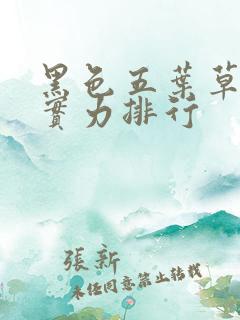 黑色五葉草
實力排行
張新
未任同意禁止转载